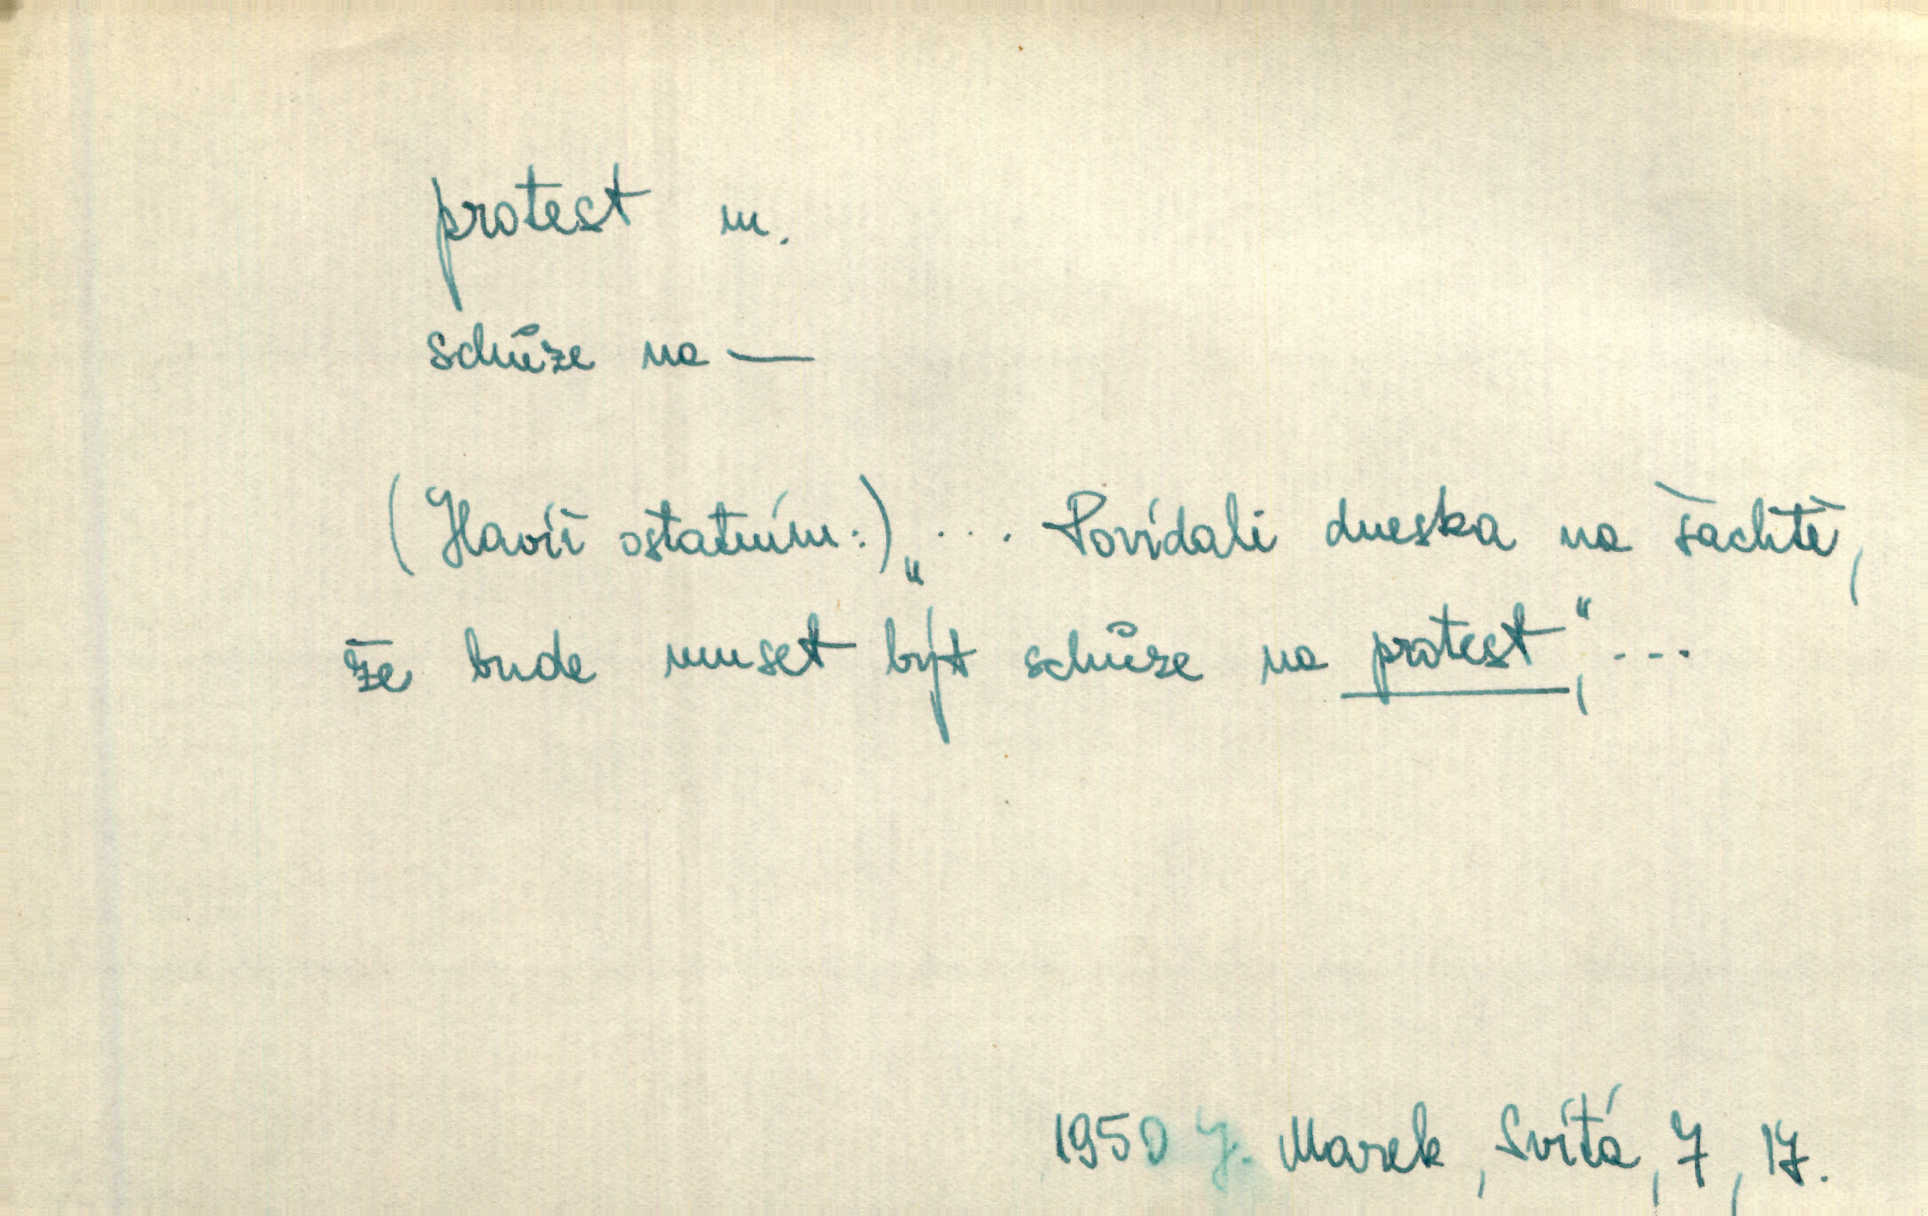 protest m.
schůze na —
(Havíř ostatním:) „... Povídali dneska na šachtě,
že bude muset být schůze na protest“, ...
1950 J. Marek, Svítá, 7, 17.